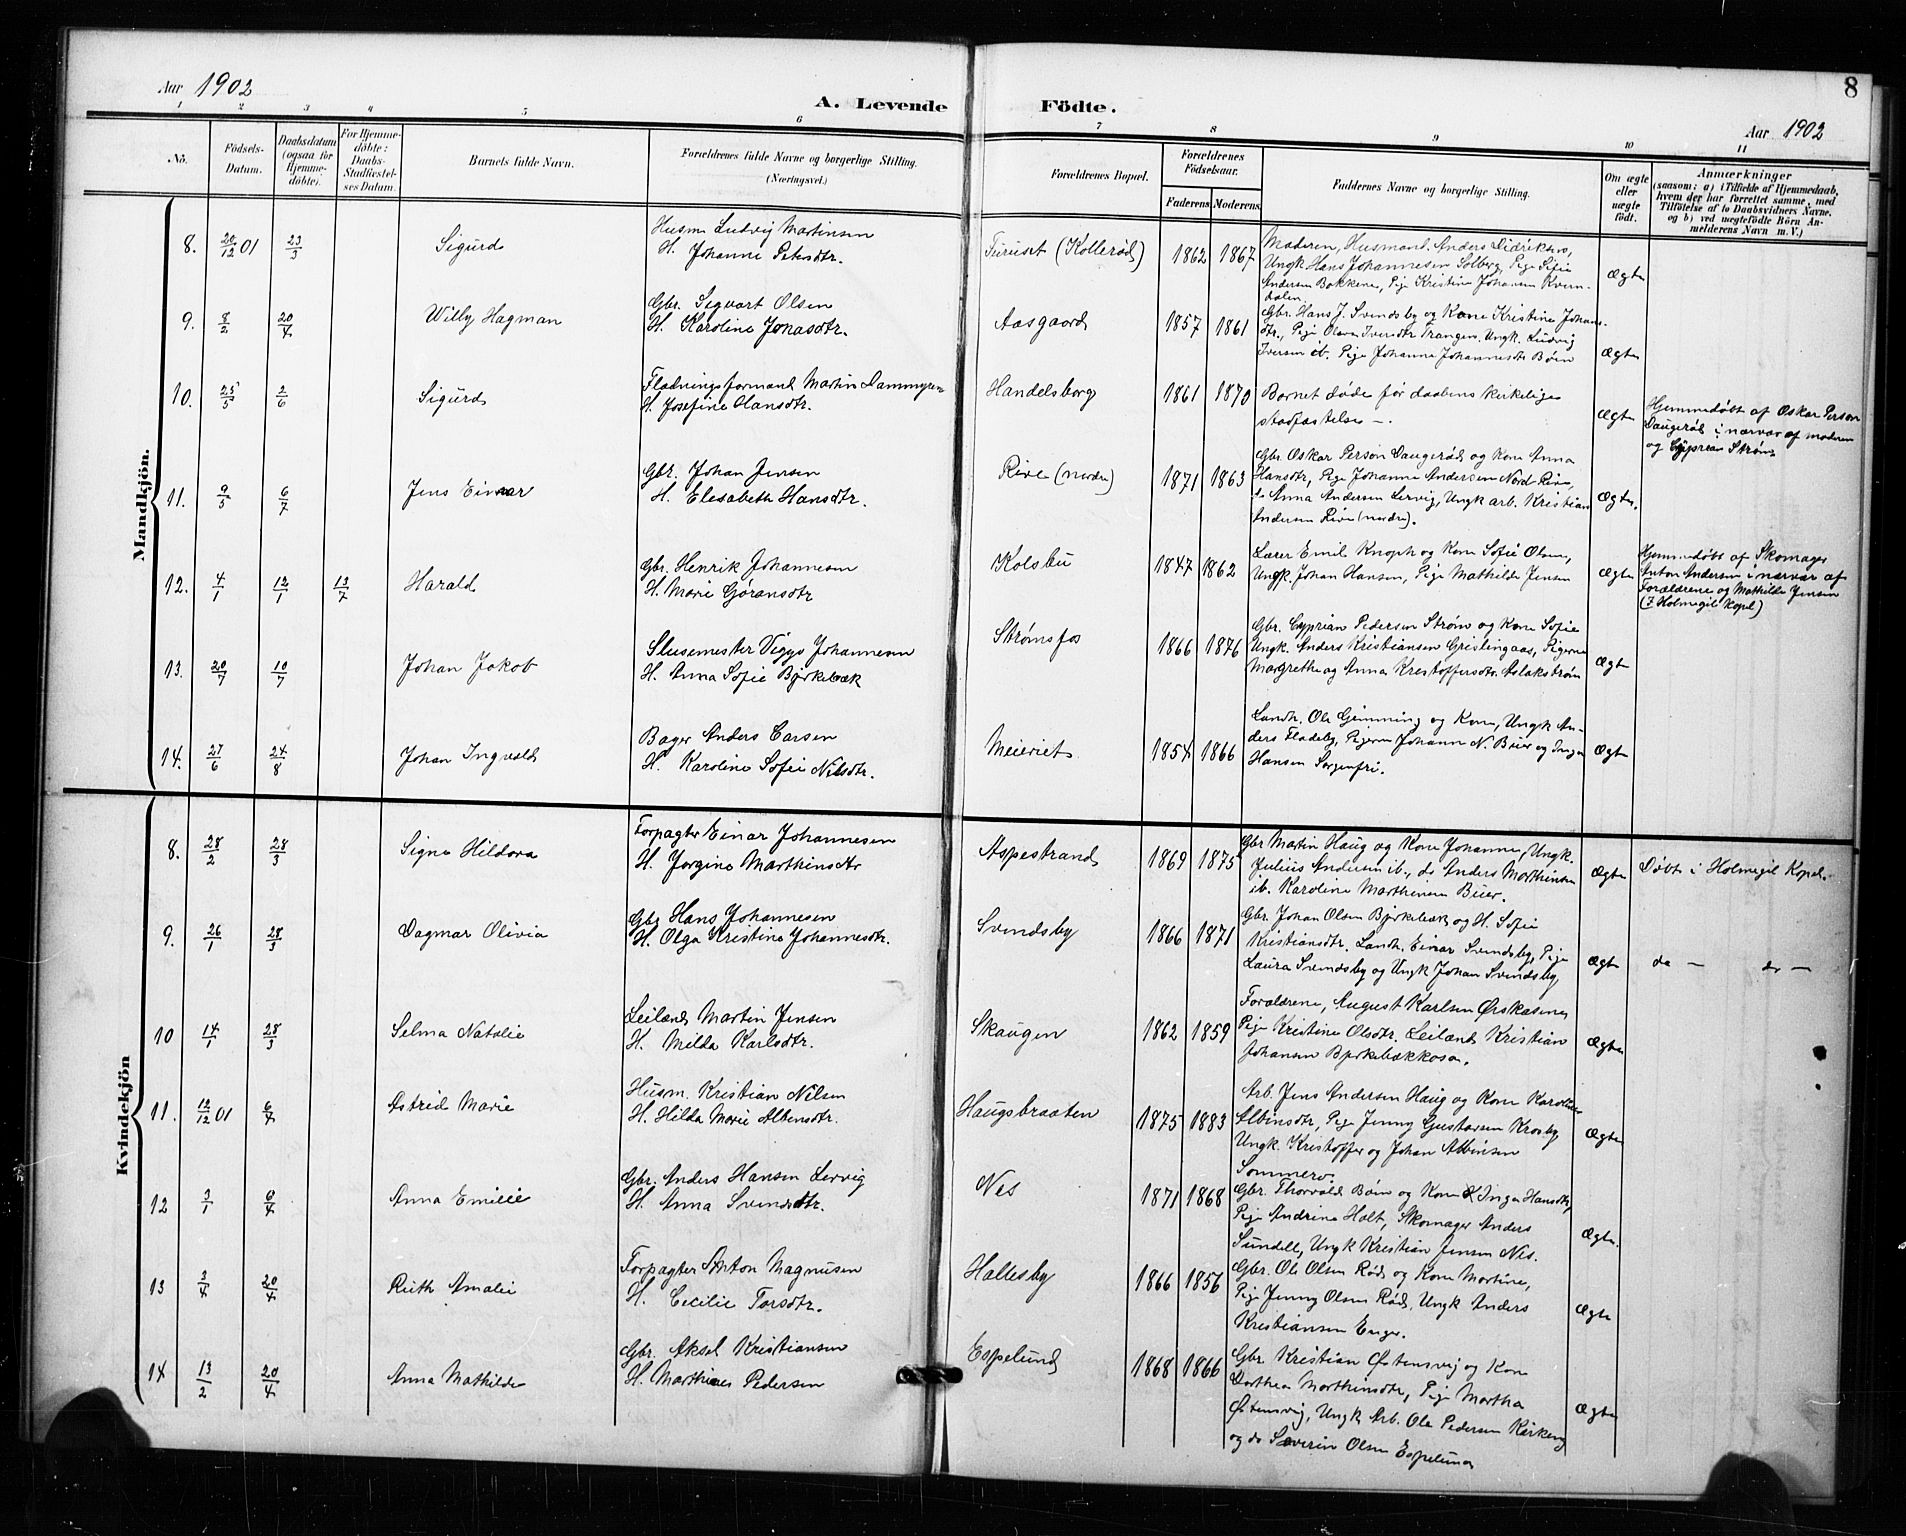 Aar 1902
A. Levende Födte.
8
Aar 1902
1 2 3 4 5 6 7 8 9 10 11
No.
Födsels-
Datum.
Daabsdatum
(ogsaa for
Hjemme-
döbte).
For Hjemme-
döbte:
Daabs-
Stadfæstel-
ses Datum.
Barnets fulde Navn.
Forældrenes fulde Navne og borgerlige Stilling.
(Næringsvei.)
Forældrenes Bopæl.
Forældrenes
Födselsaar.
Faderens Moderens.
Faddernes Navne og borgerlige Stilling.
Om ægte
eller
uægte
födt.
Anmærkninger
(saasom: a) i Tilfælde af Hjemmedaab,
hvem der har forrettet samme, med
Tilföielse af to Daabsvidners Navne.
og b) ved uægtefödte Börn An-
melderens Navn m. V.)
Mandkjön.
8. 20/12 01 23/3 Sigurd
Husm Ludvig Martinsen
H. Johanne Petersdtr.
Furuset (Kollerød) 1862 1867
Moderen, Husmand Anders Didriksen,
Ungk Hans Johannesen Solberg, Pige Sofie
Andersen Bakkene, Pige Kristine Johansen Kvern-
dalen
Ægte
9. 8/2 20/4 Willy Hagman
Gbr. Sigvart Olsen
H. Karoline Jonasdtr.
Aasgaard 1857 1861
Gbr. Hans J. Svendsby og Kone Kristine Johans-
dtr., Pige Olava Iversdtr Trangen. Ungk. Ludvig
Iversen ib. Pige Johanne Johannesdtr Böen
Ægte
10. 25/5 2/6 Sigurd
Flødningsformand Martin Dammyren
H. Josefine Olansdtr.
Handelsborg 1861 1870
Barnet døde før daabens kirkelige
stadfæstelse –.
Ægte
Hjemmedøbt af Oskar Person
Daugerød i nærvær af moderen
og Cyprian Strøm
11. 9/5 6/7 Jens Einar
Gbr. Johan Jensen
H. Elisabeth Hansdtr.
Rive (nordre) 1871 1863
Gbr. Oskar Person Daugerød og Kone Anna
Hansdtr, Pige Johanne Andersen Nord Rive,
do Anna Andersen Lervig, Ungk arb. Kristian
Andersen Rive (nordre).
Ægte.
12. 4/1 12/1 13/7 Harald
Gbr. Henrik Johannesen
H. Marie Gøransdtr
Kolsbu 1847 1862
Lærer Emil Knoph og Kone Sofie Olsen,
Ungk. Johan Hansen, Pige Mathilde Jensen
Ægte
Hjemmedøbt af Skomager
Anton Andersen i nærvær af
Forældrene og Mathilde Jensen
(I Holmegil Kapel)
13. 20/7 10/7 Johan Jakob
Slusemester Viggo Johannesen
H. Anna Sofie Bjerkebæk
Strømsfos 1866 1876
Gbr. Cyprian Pedersen Strøm og Kone Sofie
Ungk. Anders Kristiansen Grislingaas, Pigerne
Margrethe og Anna Kristoffersdtr. Aslakstrøm
Ægte
14. 27/6 24/8 Johan Ingvald
Bager Anders Carsen
H. Karoline Sofie Nilsdtr.
Meieriet 1854 1866
Landh. Ole Gimming og Kone, Ungk An-
ders Fladeby, Pigerne Johanne N. Buer og Inga
Hansen Sorgenfri.
Ægte
Kvindekjön
8. 28/2 28/3 Signe Hildora
Forpagter Einar Johannesen
H. Jorgine Marthinsdtr
Aspestrand 1869 1875
Gbr Martin Haug og Kone Johanne, Ungk.
Julius Andersen ib., do Anders Marthinsen
ib. Karoline Marthinsen Buer.
Ægte
Døbt i Holmegil Kapel.
9. 26/1 28/3 Dagmar Olivia
Gbr Hans Johannesen
H. Olga Kristine Johannesdtr.
Svendsby 1866 1871
Gbr. Johan Olsen Bjerkebæk og H. Sofie
Kristiansdtr. Landh. Einar Svendsby, Pige
Laura Svendsby og Ungk Johan Svendsby
Ægte
do – do –
10 14/1 28/3 Selma Natalie
Leilænd Martin Jensen
H. Milda Karlsdtr.
Skaugen 1862 1859
Forældrene, August Karlsen Ørskasmen
Pige Kristine Olsdtr. Leilænd Kristian
Johansen Bjerkebækkasa.
Ægte
11. 12/12 01 6/4 Astrid Marie
Husm. Kristian Nilsen
H. Hilda Marie Albensdtr.
Haugsbraaten 1875 1883
Arb. Jens Andersen Haug og Kone Karoline
Albinsdtr, Pige Jenny Gustavsen Krosby
Ungk. Kristoffer og Johan Albinsen
Sommero.
Ægte
12 3/1 6/4 Anna Emilie
Gbr. Anders Hansen Lervig
H. Anna Svendsdtr.
Nes 1871 1868
Gbr. Thorvald Böen og Kone Inga Hansdtr,
Pige Andrine Holt, Skomager Anders
Sundell, Ungk Kristian Jensen Nes.
Ægte.
13 3/4 20/4 Ruth Amalie
Forpagter Anton Magnusen
H. Cecilie Torsdtr.
Hallesby 1866 1856
Gbr. Ole Olsen Rød og Kone Martine,
Pige Jenny Olsen Rød, Ungk Anders
Kristiansen Enger.
Ægte
14 13/2 20/4 Anna Mathilde
Gbr. Aksel Kristiansen
H. Marthines Pedersen
Espelund 1868 1866
Gbr Kristian Østensvig og Kone
Dorthea Marthinsdtr, Pige Martha
Østensvig, Ungk Arb. Ole Pedersen Kirkeng
og do Severin Olsen Espelund
Ægte